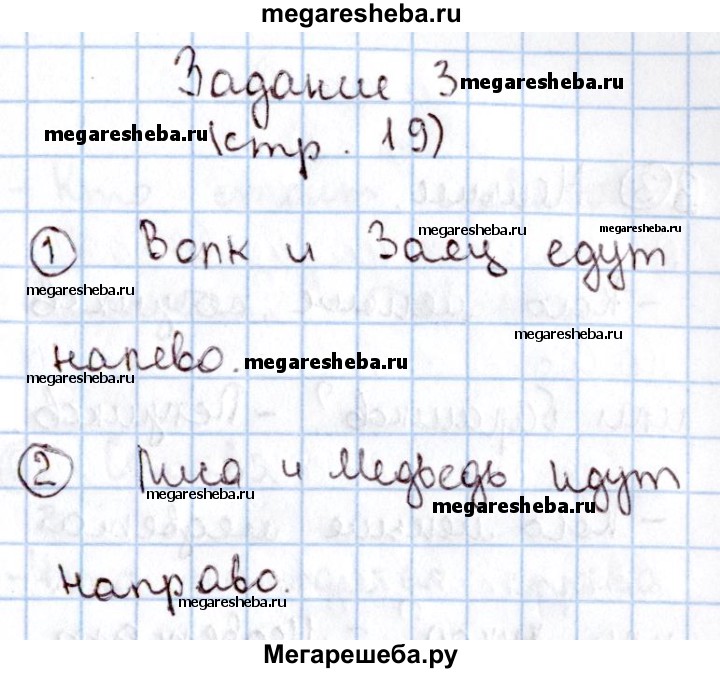 megaresheba.ru
Задание 3 megaresheba.ru
megaresheba.ru (стр. 19)
megaresheba.ru megaresheba.ru
① Волк и Заяц едут
megaresheba.ru
megaresheba.ru
налево. megaresheba.ru
megaresheba.ru
② Лиса и Медведь идут
megaresheba.ru megaresheba.ru
направо.
megaresheba.ru
Мегарешеба.ру